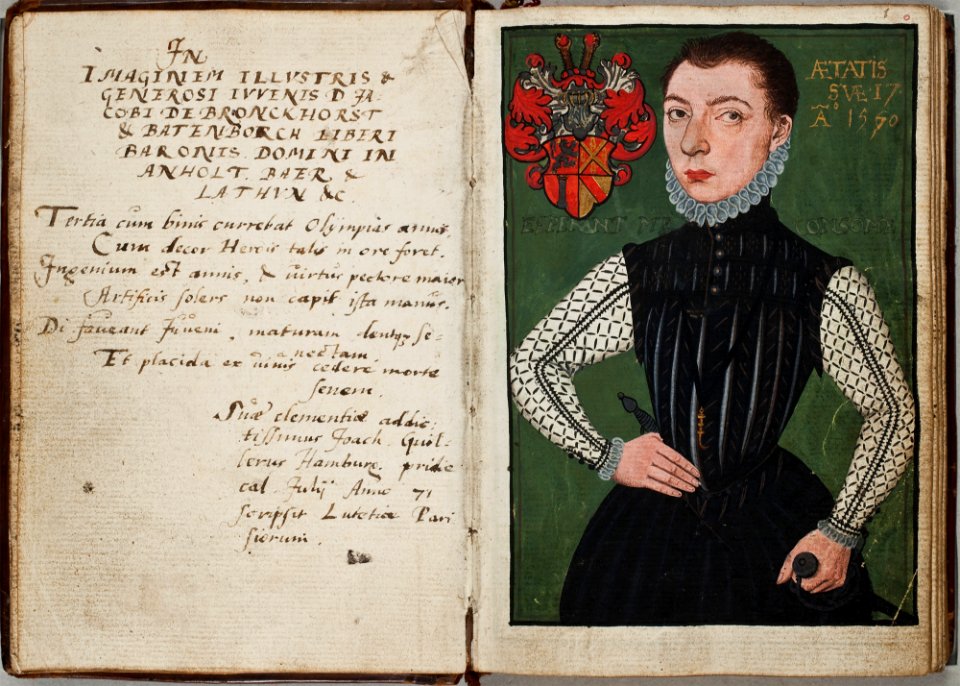 IN
IMAGINEM ILLVSTRIS &
GENEROSI IVVENIS D JA-
COBI DE BRONCKHORST
& BATENBORCH LIBERI
BARONIS DOMINI IN
ANHOLT, BAER &
LATHVN &c.
Tertia cum binis currebat Olympias annus,
Cum decor Herois talis in ore foret.
Ingenium est annis, & virtus pectore maior
Artificis solers non capit ista manus.
Di faveant Juveni, maturam dentqz se-
nectam,
Et placida ex vivis cedere morte
senem.
Suæ clementiæ addic-
tissimus Joach.
Hamburg. pridie
cal. Julij Anno 71
scripsit Lutetiæ Pari
siorum.
ÆTATIS
SVÆ 17
Aº 1570